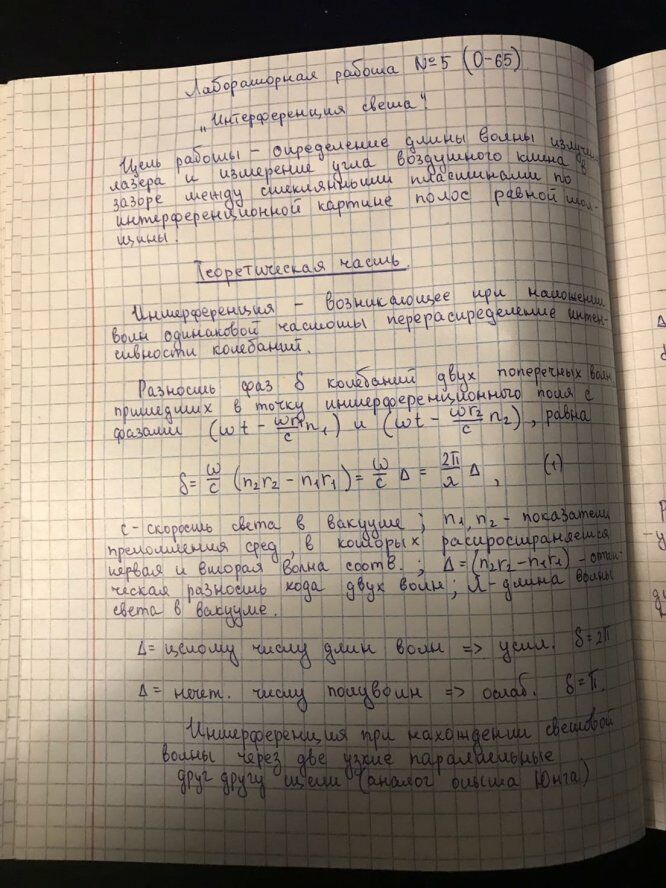 Лабораторная работа №5 (О-65)
„Интерференция света".
Цель работы – определение длины волны излуч.
лазера и измерение угла воздушного клина в
зазоре между стеклянными пластинами по
интерференционной картине полос равной тол-
щины.
Теоретическая часть.
Интерференция – возникающее при наложении
волн одинаковой частоты перераспределение интен-
сивности колебаний.
Разность фаз δ колебаний двух поперечных волн
пришедших в точку интерференционного поля с
фазами (ωt - ωr₁/c n₁) и (ωt - ωr₂/c n₂), равна
δ = ω/c (n₂r₂ - n₁r₁) = ω/c Δ = 2π/λ Δ, (1)
c - скорость света в вакууме; n₁, n₂ - показатели
преломления сред, в которых распространяется
первая и вторая волна соотв.; Δ = (n₂r₂ - n₁r₁) - опти-
ческая разность хода двух волн; λ - длина волны
света в вакууме.
Δ = целому числу длин волн => усил. δ = 2π
Δ = нечет. числу полуволн => ослаб. δ = π.
Интерференция при нахождении световой
волны через две узкие параллельные
друг другу щели (аналог опыта Юнга)